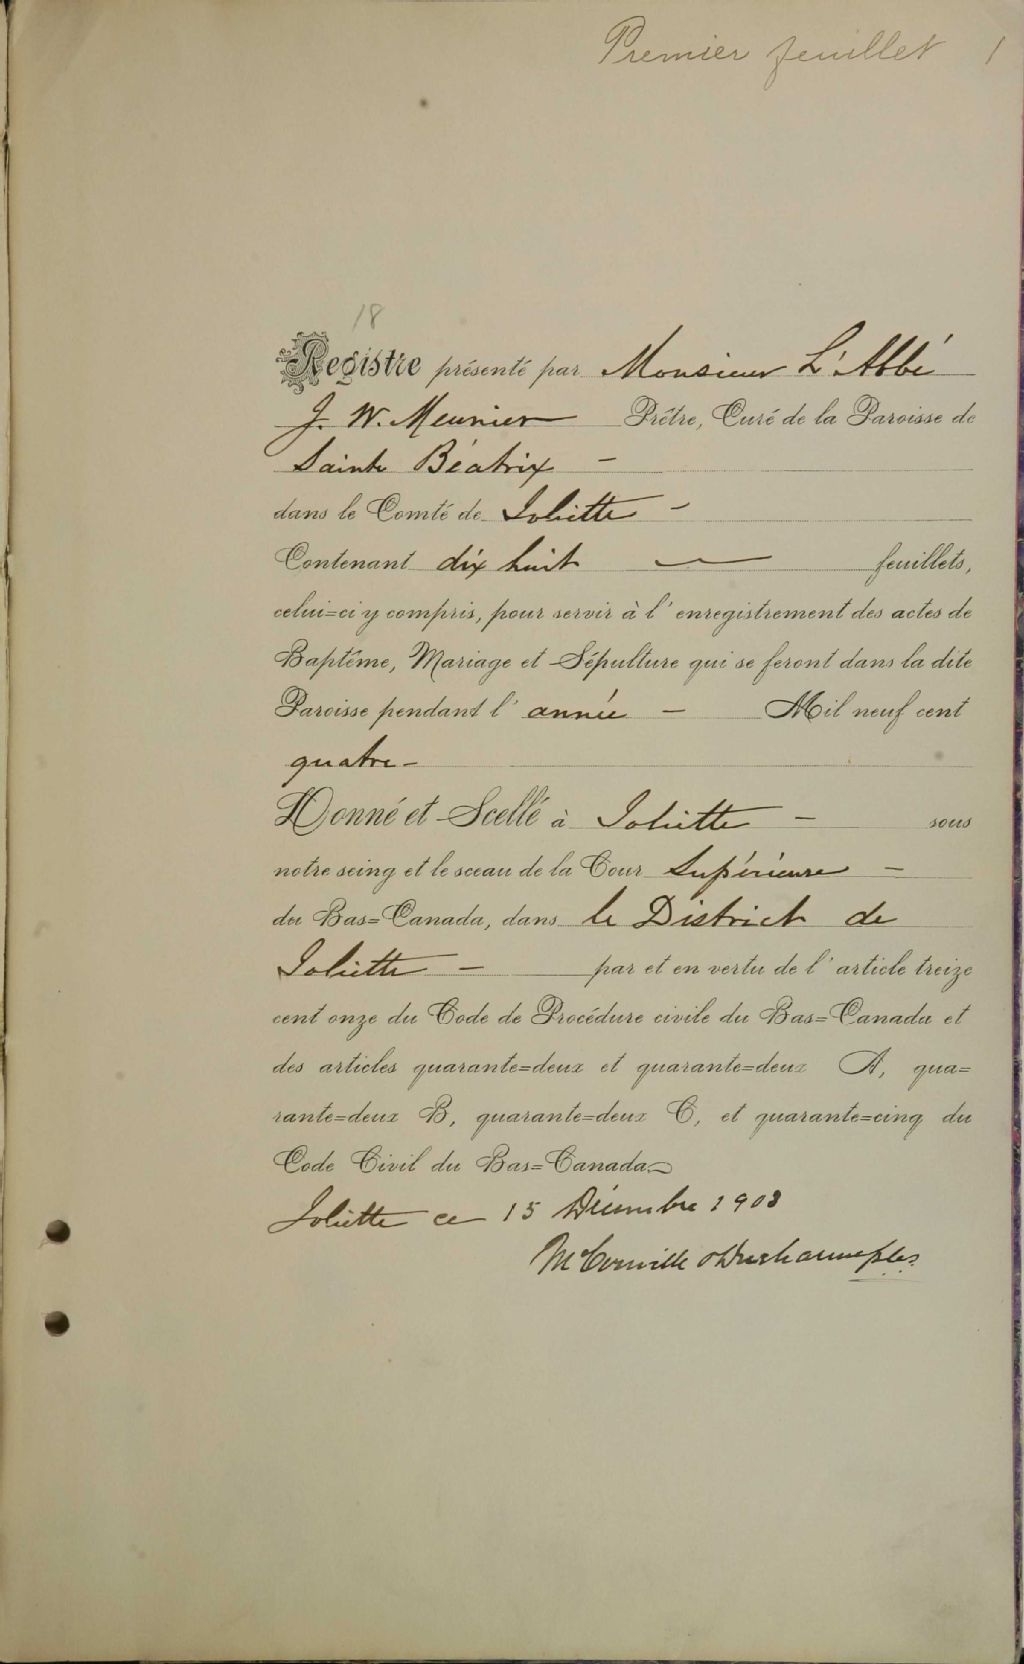 Premier feuillet 1
18
Registre présenté par Monsieur L'Abbé
J. W. Meunier Prêtre, Curé de la Paroisse de
Sainte Béatrix –
dans le Comté de Joliette –
Contenant dix huit — feuillets,
celui=ci y compris, pour servir à l'enregistrement des actes de
Baptême, Mariage et Sépulture qui se feront dans la dite
Paroisse pendant l'année – Mil neuf cent
quatre –
Donné et Scellé à Joliette – sous
notre seing et le sceau de la Cour Supérieure –
du Bas=Canada, dans le District de
Joliette – par et en vertu de l'article treize
cent onze du Code de Procédure civile du Bas=Canada et
des articles quarante=deux et quarante=deux A, qua=
rante=deux B, quarante=deux C, et quarante=cinq du
Code Civil du Bas=Canada.
Joliette ce 15 Décembre 1903
Desrochers